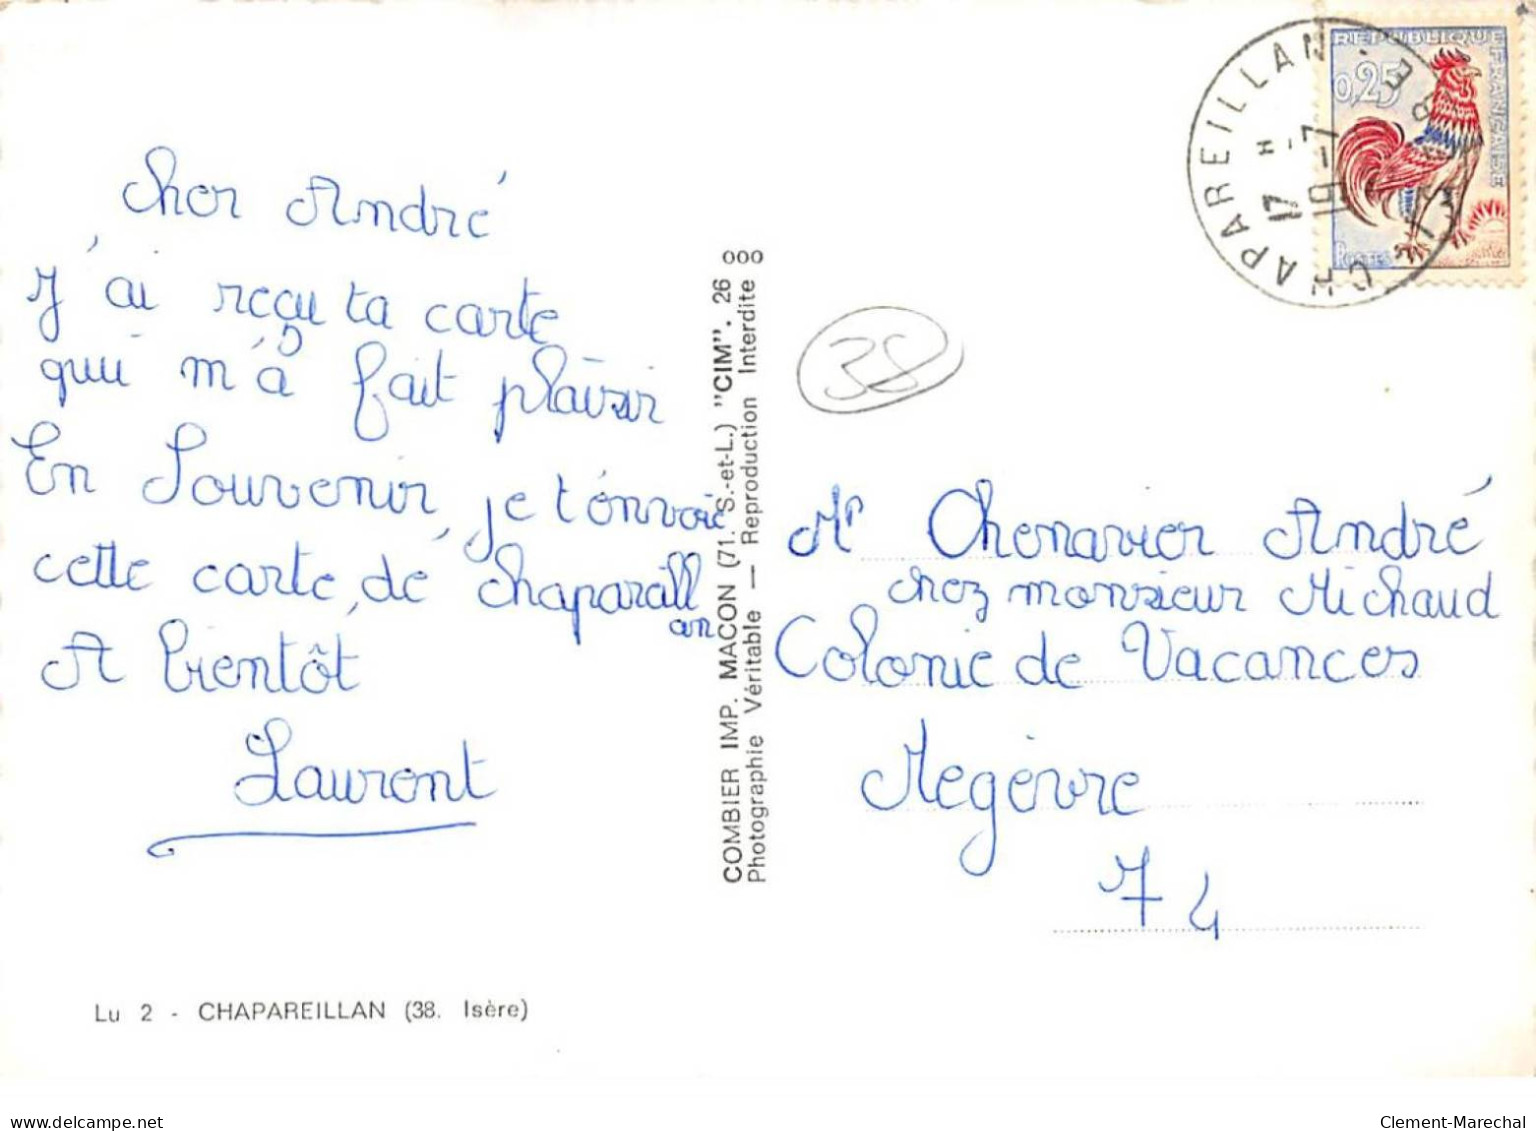 Cher André
J'ai reçu ta carte
qui m'a fait plaisir
En Souvenir, je t'envoie
cette carte de Chapareill
an
A bientôt
Laurent
Lu 2 - CHAPAREILLAN (38. Isère)
COMBIER IMP. MACON (71. S.-et-L.) "CIM". 26 000
Photographie Véritable — Reproduction Interdite
38
REPUBLIQUE FRANÇAISE
0,25
POSTES
CHAPAREILLAN
17 H
19 -7
ISERE
Mr Chenavier André
chez monsieur Michaud
Colonie de Vacances
Megève
74
delcampe.net
Clement-Marechal